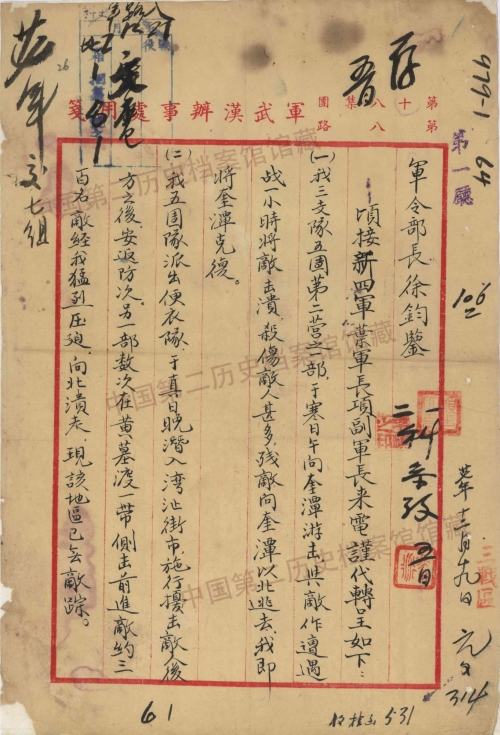 第十八集團路
第八 軍武漢辦事處用箋
軍令部長徐鈞鑒
頃接新四軍葉軍長項副軍長来電謹代轉呈如下：
㈠我三支隊五團第二營之一部，于寒日午向奎潭游击與敵作遭遇
战一小時將敵击潰，殺傷敵人甚多殘敵向奎潭以北逃去，我即
將奎潭克復。
㈡我五團隊派出便衣隊，于真日晚潛入湾沚街市，施行擾击敵後
方之後，安返防次。另一部数次在黄墓渡一帶側击前進敵約三
百名敵經我猛烈压迫，向北潰走，現該地區已無敵踪。
存
第一廳
979-1
64
106
三戰區
314
交七組
26
61
531
中国第二历史档案馆馆藏
中国第二历史档案馆馆藏
中国第二历史档案馆馆藏